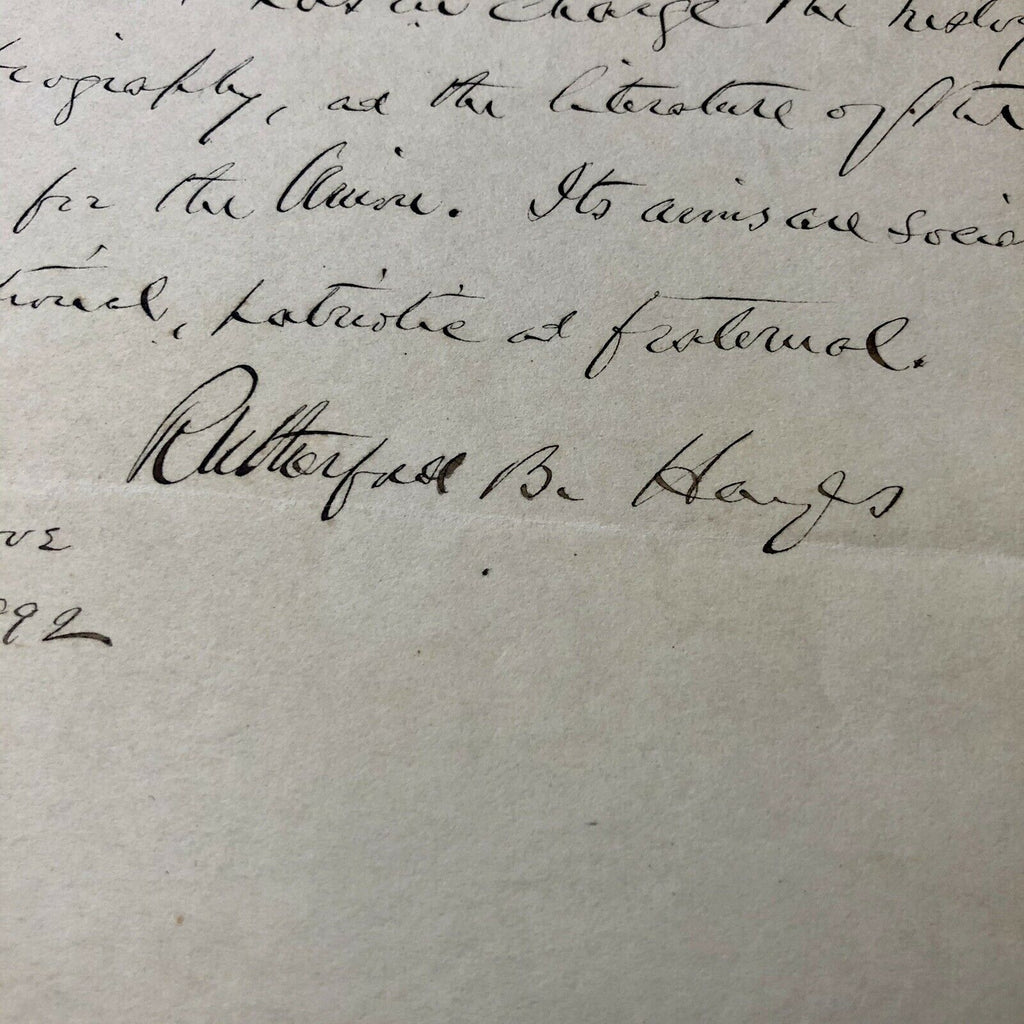 has in charge the history
biography, ad the literature of the
for the Union. Its aims are social
tional, patriotic ad fraternal.
Rutherford B. Hayes
ove
892